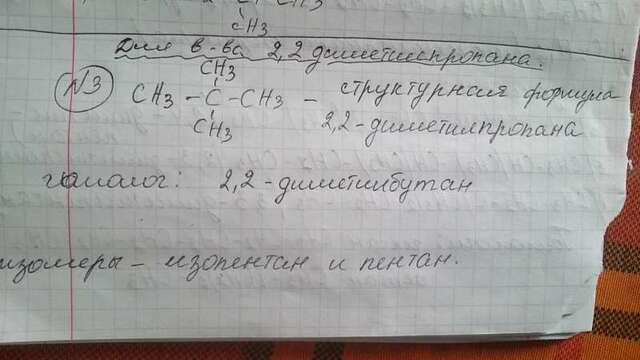 CH3
Для в-ва 2,2 диметилпропана.
N3
CH3
CH3 - C - CH3 - структурная формула
CH3 2,2-диметилпропана
гомолог: 2,2-диметилбутан
изомеры - изопентан и пентан.